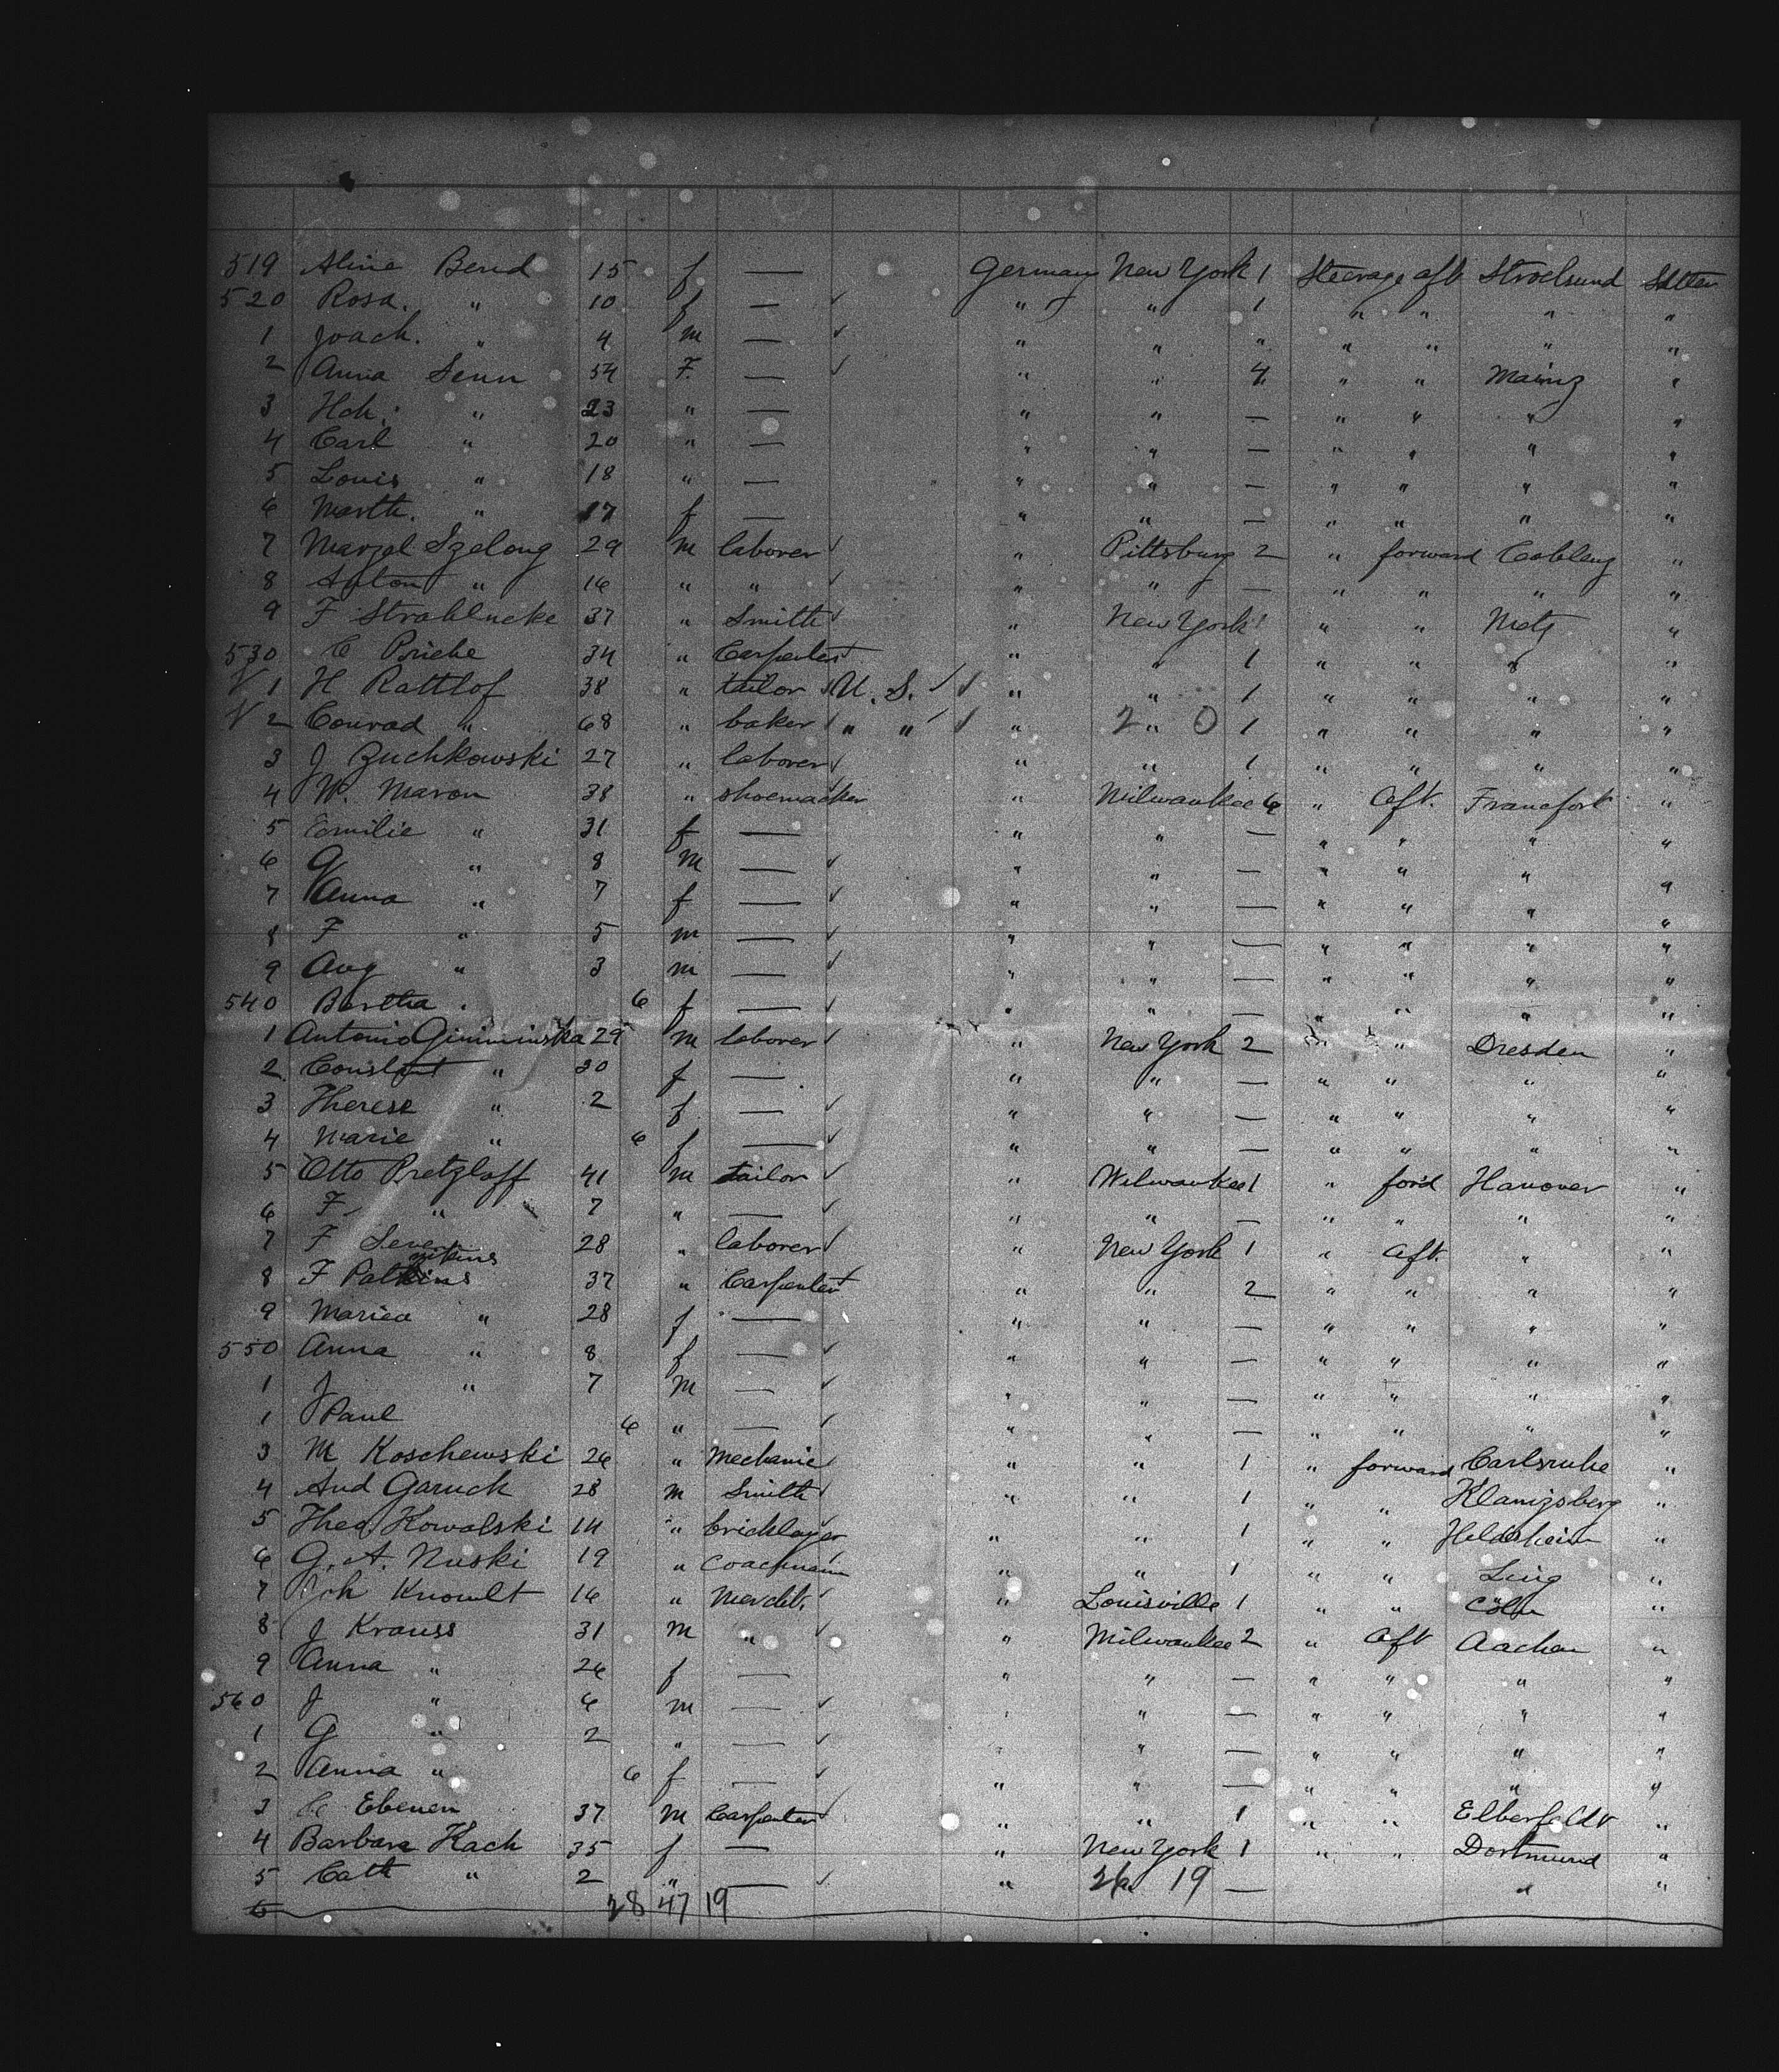 519 Aline Bend 15 f — Germany New York 1 Steerage aft Stroelsund Settler
520 Rosa. " 10 f — ✓ " " 1 " " " "
1 Joach. " 4 m — ✓ " " " " " " "
2 Anna Senn 54 F. — ✓ " " 4 " " Mainz "
3 Hch. " 23 " — " " — " " " "
4 Carl " 20 " — " " — " " " "
5 Louis " 18 " — " " — " " " "
6 Marth. " 17 f — " " — " " " "
7 Marzel Szelong 29 m laborer ✓ " Pittsburg 2 " forward Coblenz "
8 Anton " 16 " " ✓ " " — " " " "
9 F Strahlucke 37 " Smith ✓ " New York 1 " " Metz "
530 C Priebe 34 " Carpenter ✓ " " 1 " " " "
✓ 1 H Rattlof 38 " tailor ✓ U. S. ✓ ✓ " " 1 " " " "
✓ 2 Conrad " 68 " baker ✓ " " ✓ ✓ " 2 " 0 1 " " " "
3 J Zuchkowski 27 " laborer ✓ " " 1 " " " "
4 W. Maron 38 " shoemacker " Milwaukee 6 " Aft. Francfort "
5 Emilie " 31 f — " " — " " " "
6 G " 8 m — ✓ " " — " " " "
7 Anna " 7 f — ✓ " " — " " " "
8 F " 5 m — ✓ " " — " " " "
9 Aug " 3 m — ✓ " " — " " " "
540 Bertha . 6 f — ✓ " " — " " " "
1 Antonio Giminiuska 29 m laborer ✓ " New York 2 " " Dresden "
2 Constant " 30 f — " " — " " " "
3 Therese " 2 f — ✓ " " — " " " "
4 Marie " 6 f — ✓ " " — " " " "
5 Otto Pretzlaff 41 m tailor ✓ " Milwaukee 1 " for'd Hanover "
6 F " 7 " — ✓ " " — " " " "
7 F Sever 28 " laborer ✓ " New York 1 " Aft. " "
8 F Patkins 37 " Carpenter ✓ " " 2 " " " "
9 Mariea " 28 f — " " — " " " "
550 Anna " 8 f — ✓ " " — " " " "
1 J " 7 m — ✓ " " — " " " "
1 Paul 6 " — ✓ " " — " " " "
3 M Koschewski 26 " Mechanic ✓ " " 1 " forward Carlsruhe "
4 And Garuck 28 m Smith ✓ " " 1 " " Klanizsberg "
5 Theo Kowalski 14 " bricklayer " " 1 " " Heldesheim "
6 G. A. Nuski 19 " Coachman " " 1 " " Linz "
7 Joh Knoult 16 " Mercht. ✓ " Louisville 1 " " Cöln "
8 J Krauss 31 m " ✓ " Milwaukee 2 " Aft Aachen "
9 Anna " 26 f — " " — " " " "
560 J " 6 m — ✓ " " — " " " "
1 G " 2 " — ✓ " " — " " " "
2 Anna " 6 f — ✓ " " — " " " "
3 Ebenen 37 m Carpenter ✓ " " 1 " " Elberfeldt "
4 Barbara Kach 35 f — " New York 1 " " Dortmund "
5 Cath " 2 " — ✓ " 26 19 — " "
6 28 47 19